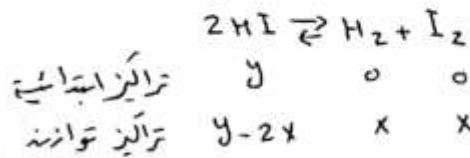 2HI ⇄ H₂ + I₂
تراكيز ابتدائية y o o
تراكيز توازنية y-2x x x